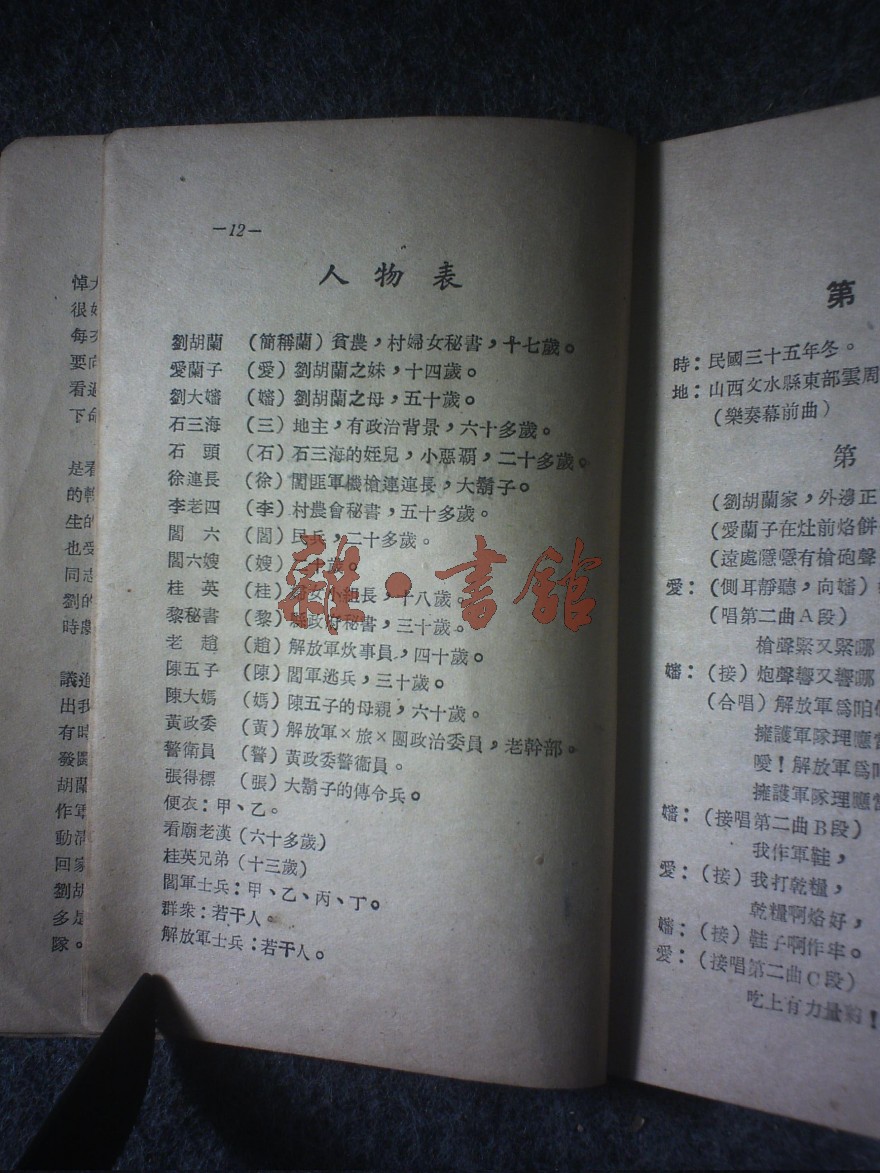 —12—
人物表
劉胡蘭 (簡稱蘭) 貧農，村婦女秘書，十七歲。
愛蘭子 (愛) 劉胡蘭之妹，十四歲。
劉大嬸 (嬸) 劉胡蘭之母，五十歲。
石三海 (三) 地主，有政治背景，六十多歲。
石 頭 (石) 石三海的姪兒，小惡覇，二十多歲。
徐連長 (徐) 閻匪軍機槍連連長，大鬍子。
李老四 (李) 村農會秘書，五十多歲。
閻 六 (閻) 民兵，二十多歲。
閻六嫂 (嫂) 二十歲。
桂 英 (桂) 婦女小組長，十八歲。
黎秘書 (黎) 縣政府秘書，三十歲。
老 趙 (趙) 解放軍炊事員，四十歲。
陳五子 (陳) 閻軍逃兵，三十歲。
陳大媽 (媽) 陳五子的母親，六十歲。
黃政委 (黃) 解放軍×旅×團政治委員，老幹部。
警衛員 (警) 黃政委警衞員。
張得標 (張) 大鬍子的傳令兵。
便衣：甲、乙。
看廟老漢 (六十多歲)
桂英兄弟 (十三歲)
閻軍士兵：甲、乙、丙、丁。
群衆：若干人。
解放軍士兵：若干人。
悼
很
每
要向
看過
下命
是看
的
生的
也受
同志
劉的
時
議進
出我
有時
發
胡蘭
作軍
動
回家
劉胡
多是
隊。
第
時：民國三十五年冬。
地：山西文水縣東部雲周
(樂奏幕前曲)
第
(劉胡蘭家，外邊正
(愛蘭子在灶前烙餅
(遠處隱隱有槍砲聲
愛：(側耳靜聽，向嬸)
(唱第二曲A段)
槍聲緊又緊哪
嬸：(接) 炮聲響又響哪
(合唱) 解放軍爲咱
擁護軍隊理應當
噯！解放軍爲
擁護軍隊理應當
嬸：(接唱第二曲B段)
我作軍鞋，
愛：(接) 我打乾糧，
乾糧啊烙好，
嬸：(接) 鞋子啊作牢。
愛：(接唱第二曲C段)
吃上有力量
雜·書館